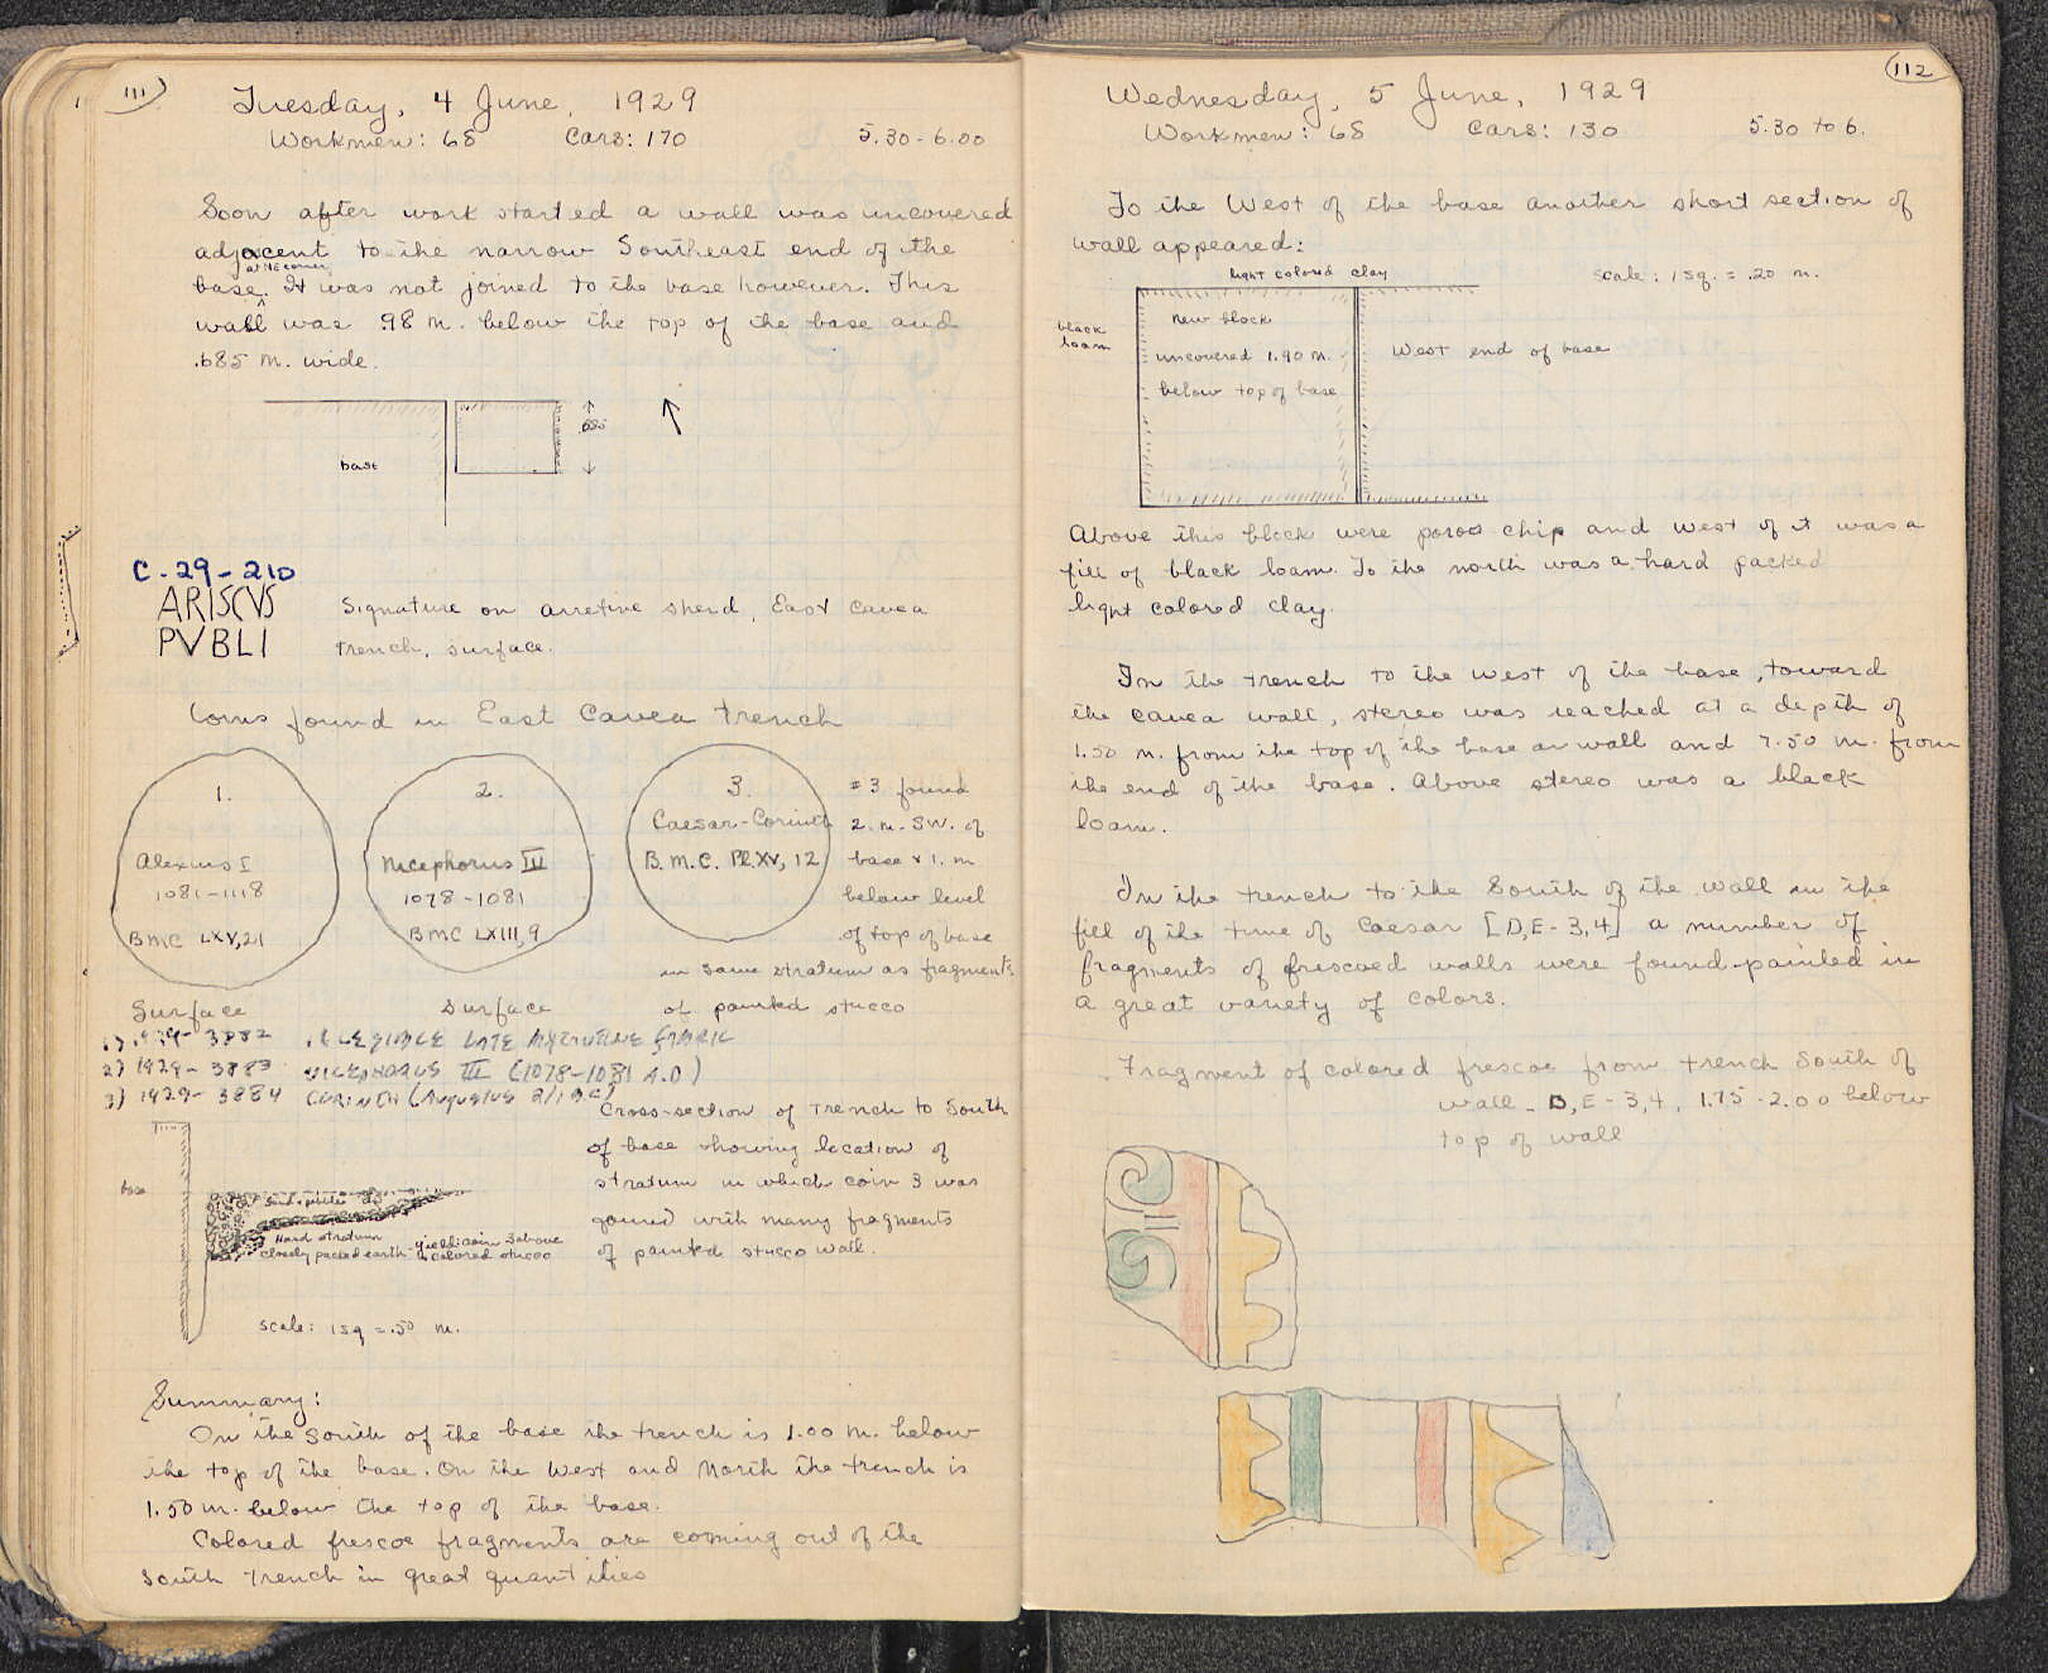 111
Tuesday, 4 June, 1929
Workmen: 68 Cars: 170 5.30-6.00
Soon after work started a wall was uncovered
adjacent to the narrow Southeast end of the
at NE corner
base. It was not joined to the base however. This
wall was .98 m. below the top of the base and
.685 m. wide.
base
.685
C-29-210
ARISCVS
PVBLI
Signature on arretine sherd, East Cavea
trench, surface.
Coins found in East Cavea trench
1.
Alexius I
1081-1118
BMC LXV,21
Surface
2.
Nicephorus III
1078-1081
BMC LXIII,9
surface
3.
Caesar-Corinth
B.M.C. Pl.XV, 12
#3 found
2. m. SW. of
base & 1. m
below level
of top of base
in same stratum as fragments
of painted stucco
1) 1929-3882 ILLEGIBLE LATE BYZANTINE FABRIC
2) 1929-3883 NICEPHORUS III (1078-1081 A.D)
3) 1929-3884 CORINTH (Augustus 2/1 BC)
base
Sand & pebbles
Hard stratum
closely packed earth - yield: coin 3 above
& colored stucco
scale: 1 sq = .50 m.
Cross-section of trench to South
of base showing location of
stratum in which coin 3 was
found with many fragments
of painted stucco wall.
Summary:
On the South of the base the trench is 1.00 m. below
the top of the base. On the West and North the trench is
1.50 m. below the top of the base.
Colored frescoe fragments are coming out of the
South trench in great quantities
112
Wednesday, 5 June, 1929
Workmen: 68 Cars: 130 5.30 to 6.
To the West of the base another short section of
wall appeared:
light colored clay
scale: 1 sq. = .20 m.
black
loam
new block
uncovered 1.90 m.
below top of base
West end of base
Above this block were poros chip and west of it was a
fill of black loam. To the north was a hard packed
light colored clay.
In the trench to the west of the base, toward
the cavea wall, stereo was reached at a depth of
1.50 m. from the top of the base or wall and 7.50 m. from
the end of the base. Above stereo was a black
loam.
In the trench to the South of the wall in the
fill of the time of Caesar [D,E-3,4] a number of
fragments of frescoed walls were found painted in
a great variety of colors.
Fragment of colored frescoe from trench South of
wall - D,E-3,4, 1.75-2.00 below
top of wall